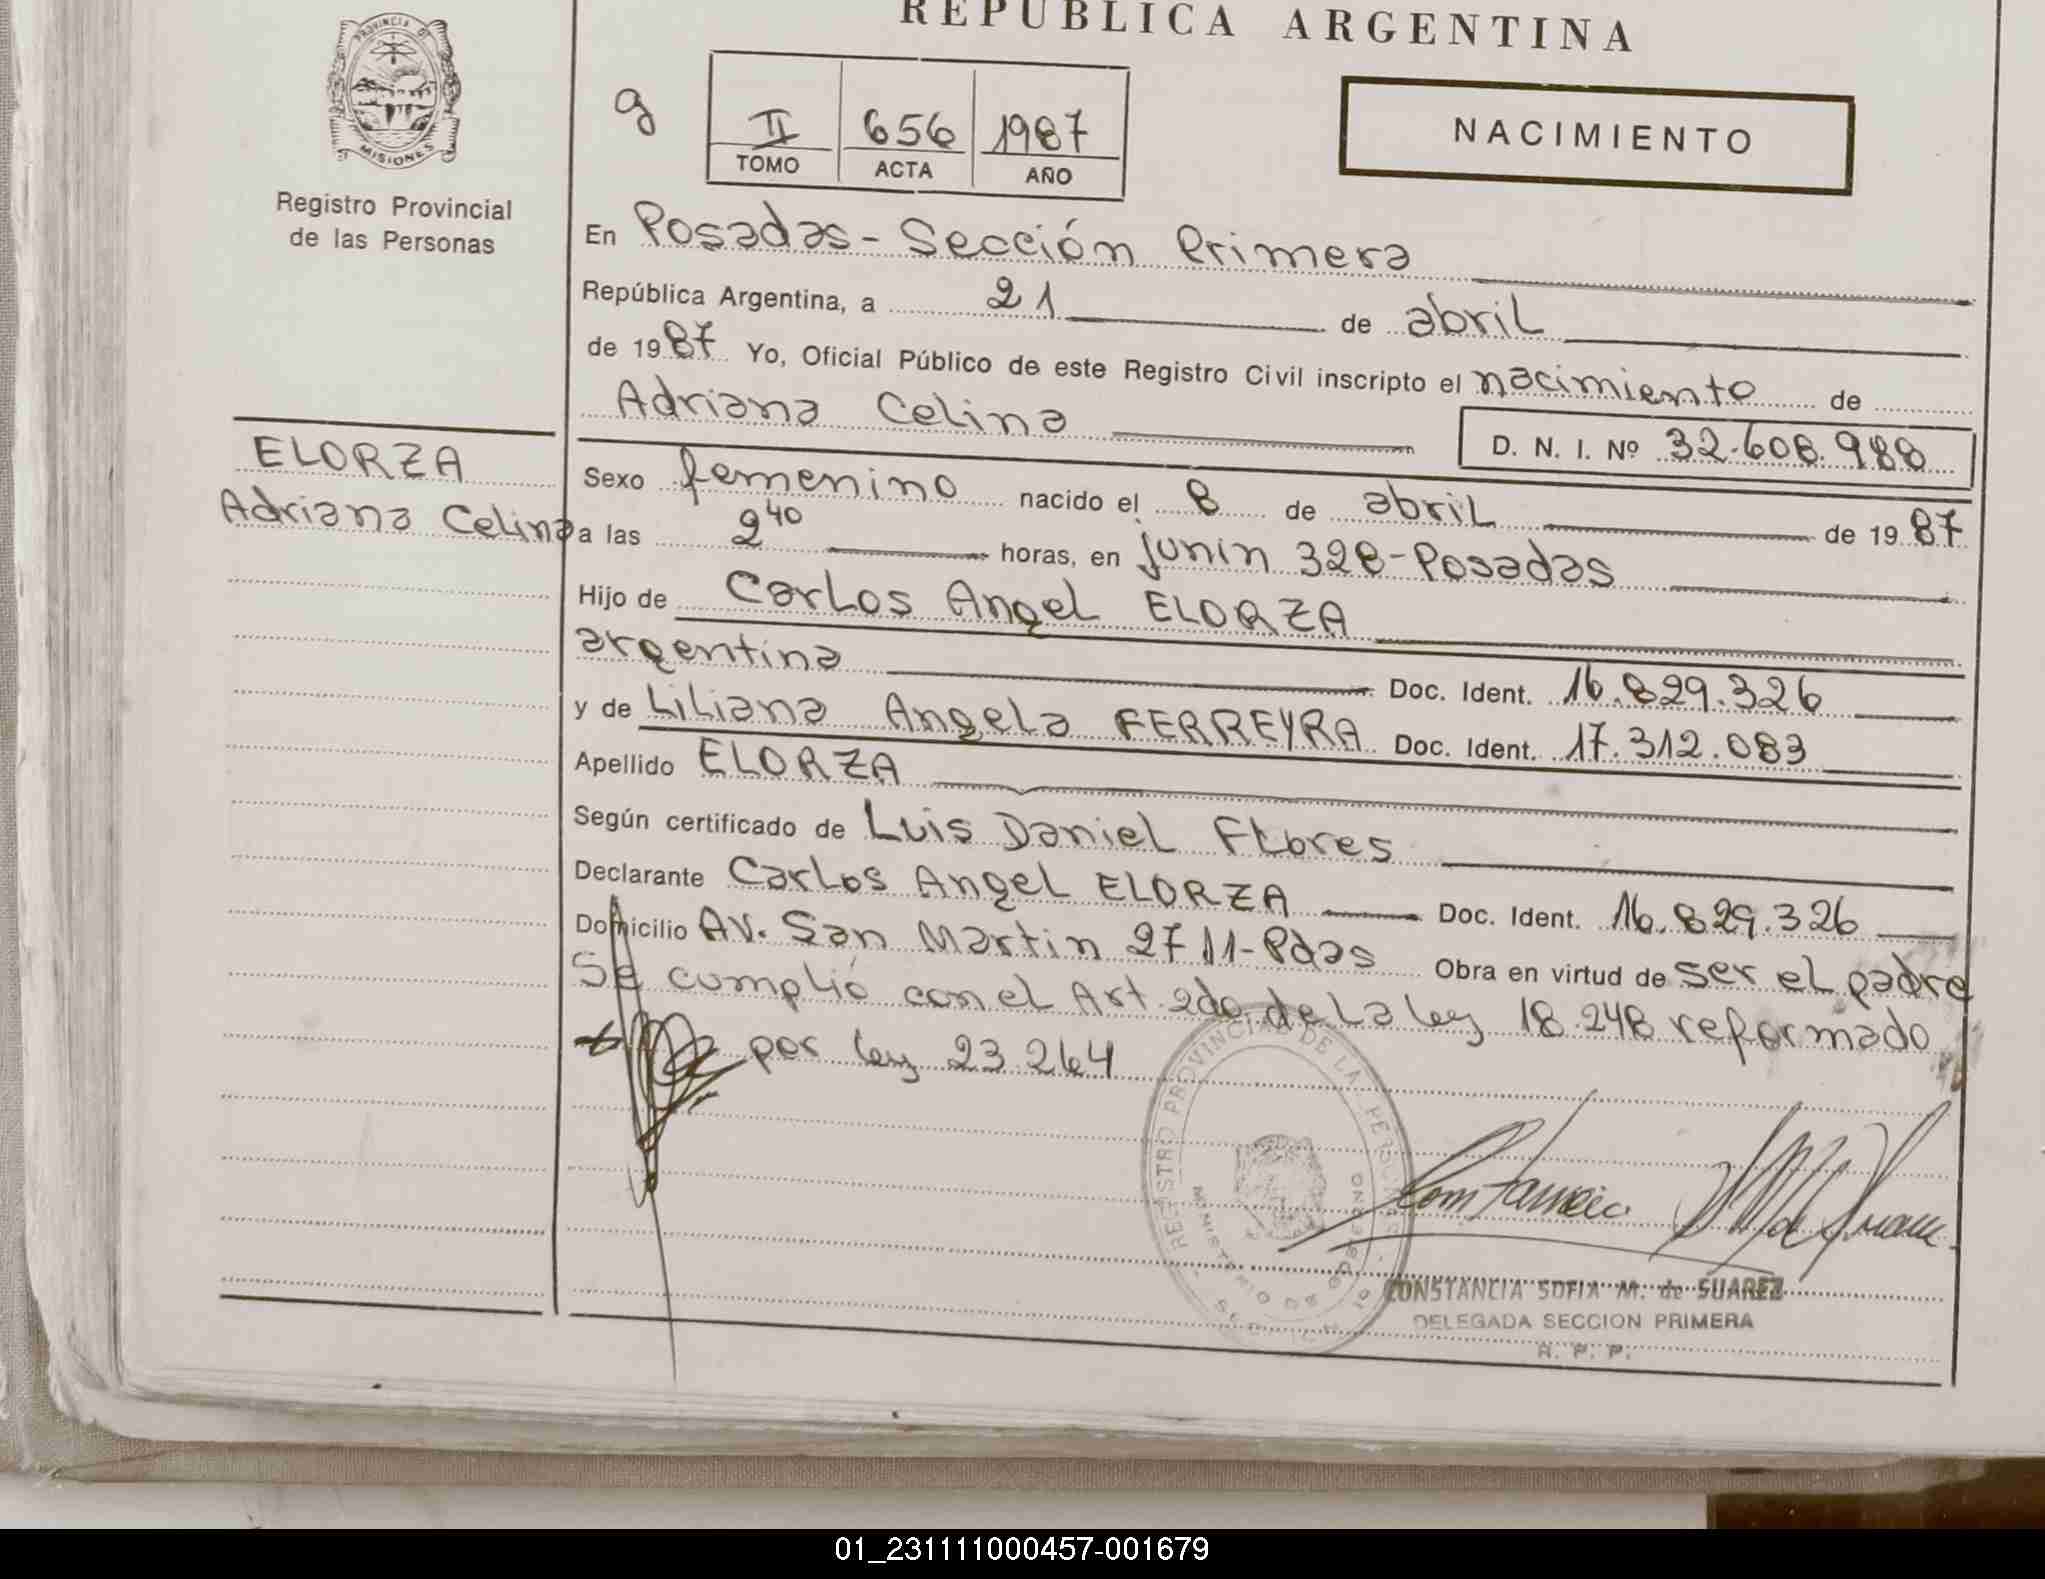 REPUBLICA ARGENTINA
PROVINCIA DE
MISIONES
Registro Provincial
de las Personas
g
II 656 1987
TOMO ACTA AÑO
NACIMIENTO
En Posadas - Sección Primera
República Argentina, a 21 de abril
de 1987 Yo, Oficial Público de este Registro Civil inscripto el nacimiento de
Adriana Celina
D. N. I. Nº 32.608.988
ELORZA
Adriana Celina
Sexo femenino nacido el 8 de abril de 1987
a las 2 40 horas, en junin 328 - Posadas
Hijo de Carlos Angel ELORZA
argentina Doc. Ident. 16.829.326
y de Liliana Angela FERREYRA Doc. Ident. 17.312.083
Apellido ELORZA
Según certificado de Luis Daniel Flores
Declarante Carlos Angel ELORZA Doc. Ident. 16.829.326
Domicilio Av. San Martin 2711 - Pdas Obra en virtud de ser el padre
Se cumplió con el Art 2do de la ley 18.248 reformado
por ley 23.264
REGISTRO PROVINCIAL DE LA PERSONAS
MINISTERIO DE GOBIERNO
CONSTANCIA SOFIA M. de SUAREZ
DELEGADA SECCION PRIMERA
R. P. P.
01_231111000457-001679